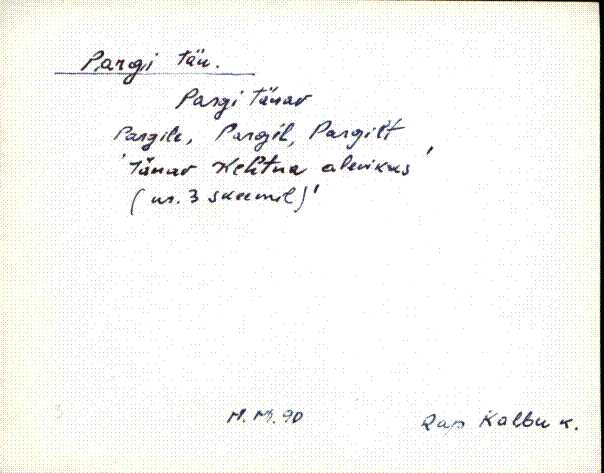 Pargi tän.
Pargi tänav
Pargile, Pargil, Pargilt
'Tänav Kehtna alevikus'
(nr. 3 skeemil)'
M. M. 90
Rap Kalbu k.